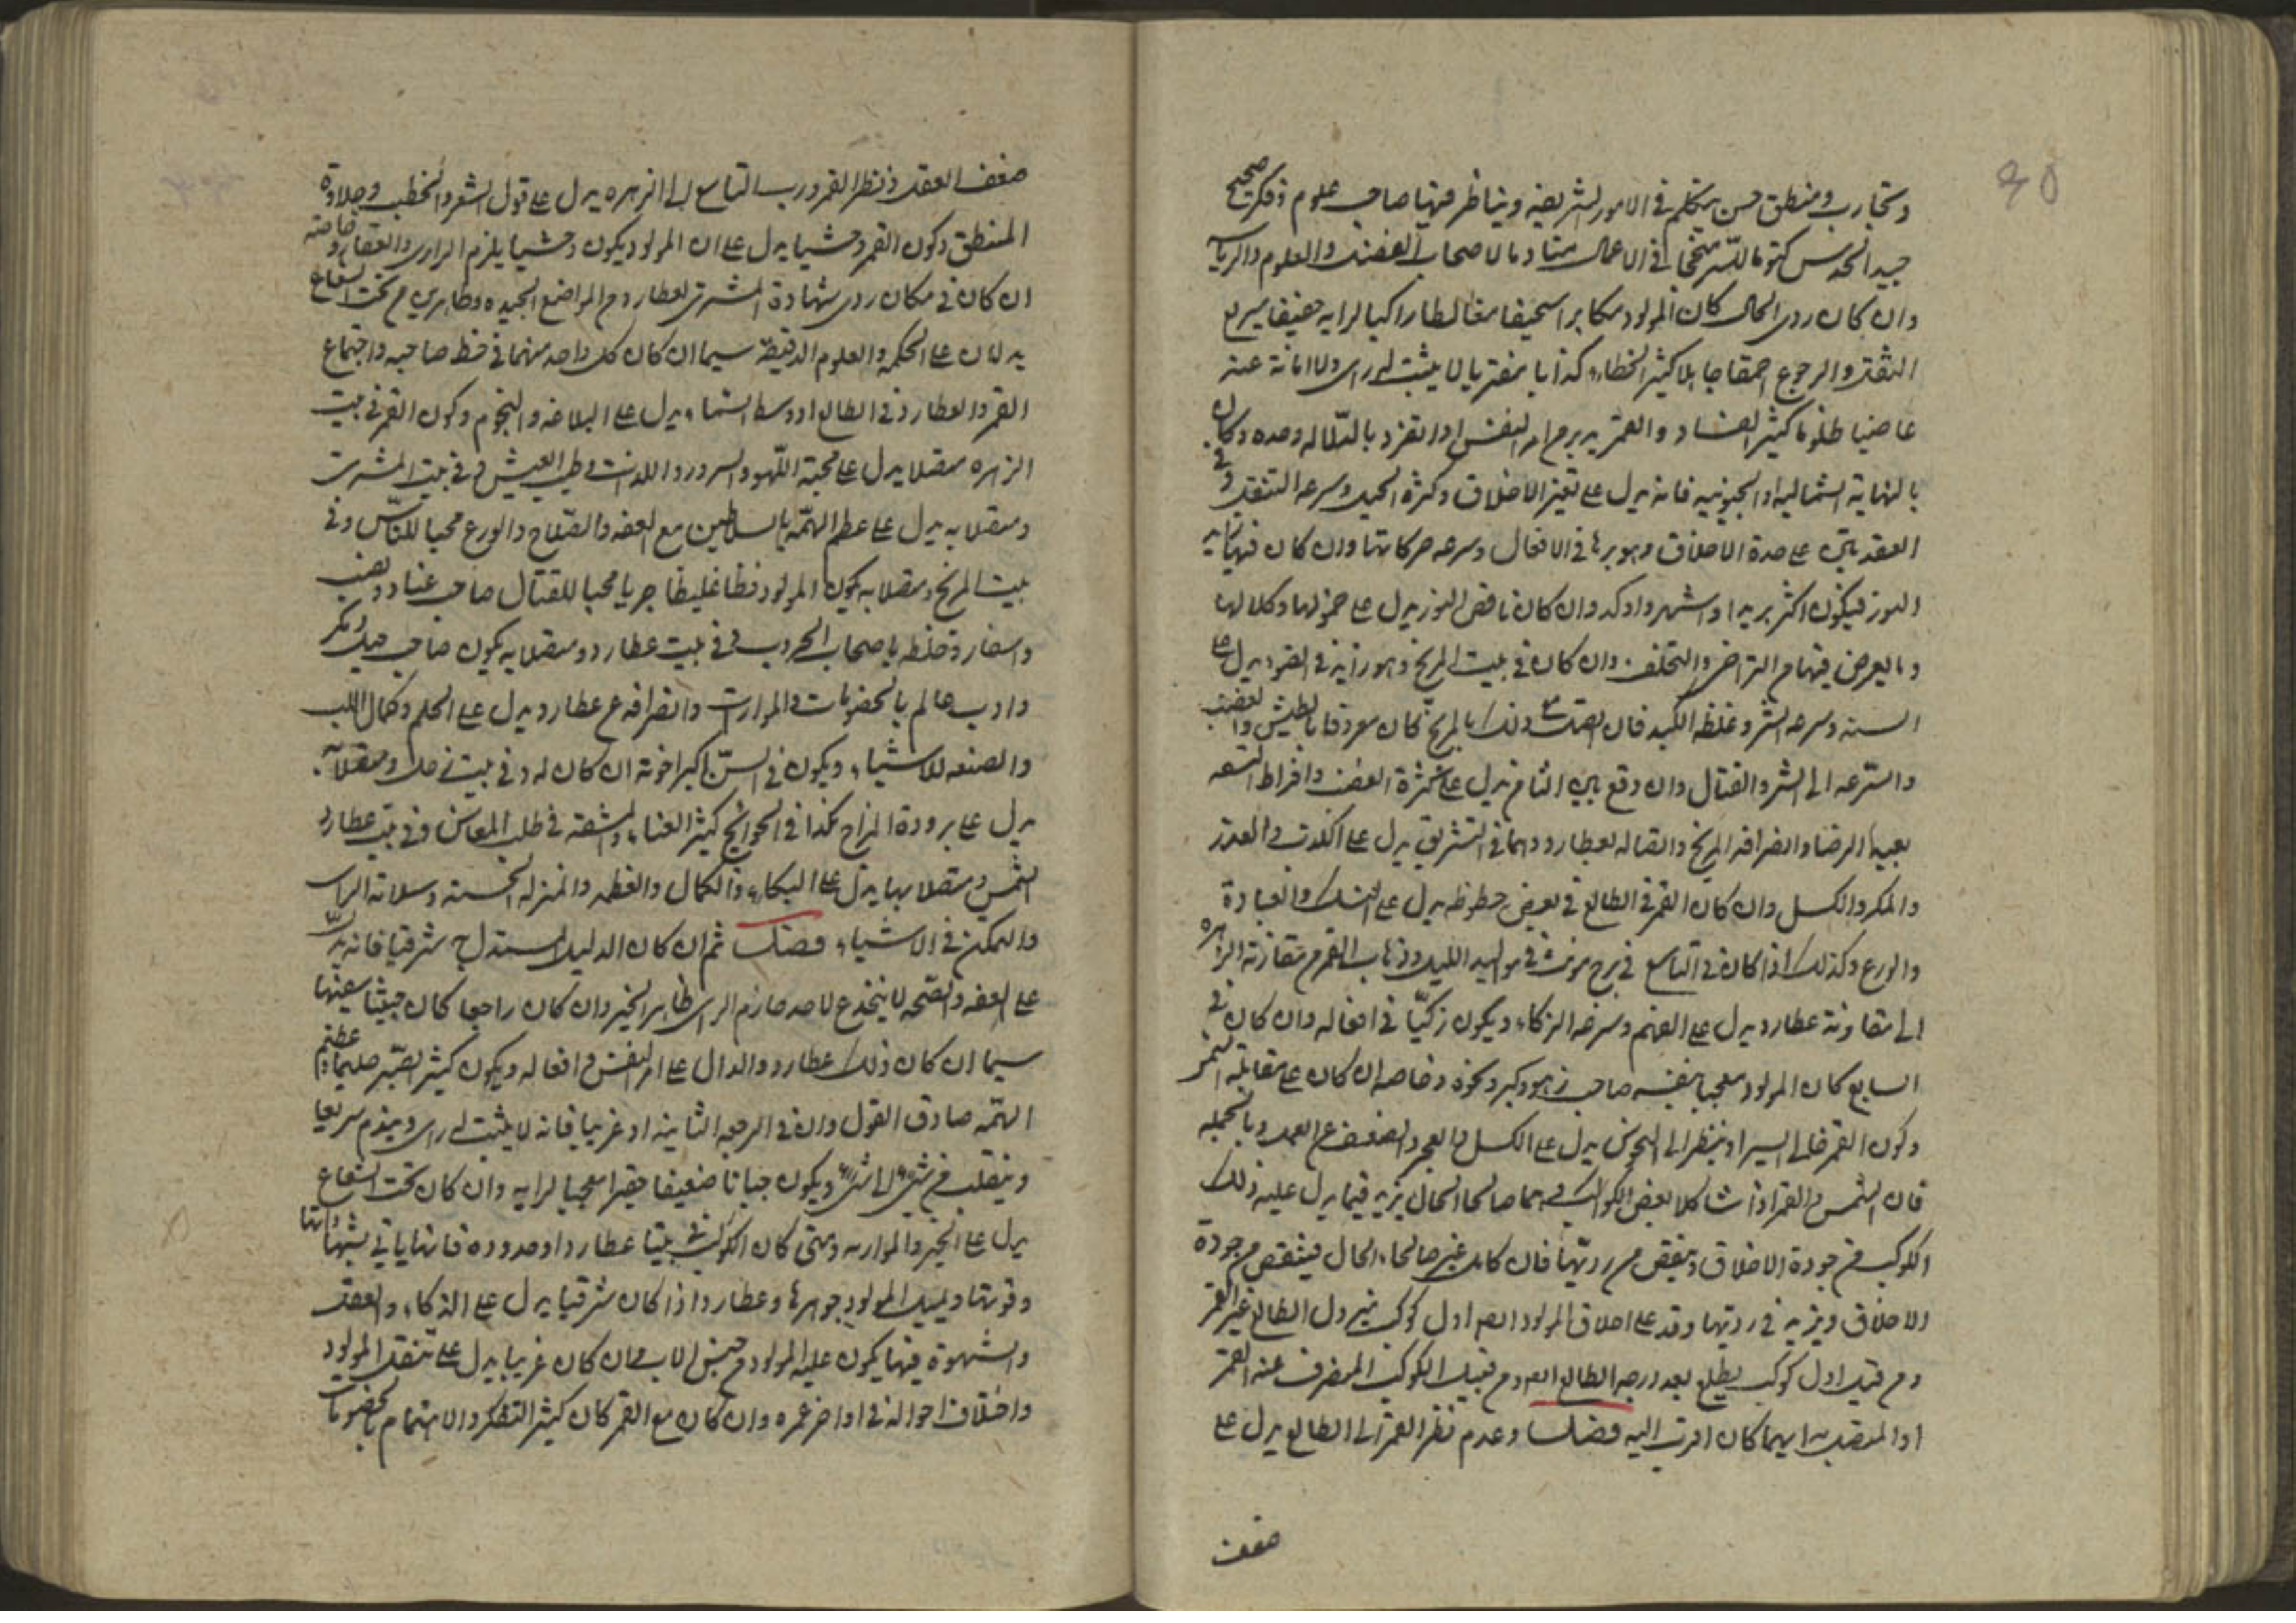 وتجارب ومنطق حسن يتكلم في الامور الشريفة ويناظر فيها صاحب علوم وفكر صحيح
جيد الحدس كتوما للسر في الاعمال لاصحاب والعلوم
وان كان ردى الحال كان المولود مكابرا سخيفا مغالطا راكبا لرايه خفيفا سريع
التنقل والرجوع احمقا جاهلا كثير الخطاء كذابا مفتريا لا يثبت له راى ولا امانة عنه
عاصيا ظلوما كثير الفساد والقمر يدبر النفس اذا تفرد بالدلاله وحده وكان
بالنهاية الشماليه او الجنوبيه فانه يدل على تغير الاخلاق وكثرة الحيل وسرعه التنقل وفي
العقدتين على حدة الاخلاق وجوهرها في الافعال وسرعه حركاتها وان كان فيها زايد
النور فيكون اكثر واشهر واوكد وان كان ناقص النور يدل على خمولها وكلالها
وما يعرض فيها من التراخى والتخلف وان كان في بيت المريخ وهو زايد في الضو يدل على
السنه وسرعه الشر وغلظ الكبد فان اتصل مع ذلك بالمريخ كان معروفا بالطيش والغضب
والسرعه الى الشر والقتال وان وقع يدل على كثرة الغضب وافراط
بعيد الرضا وانصرافه المريخ واتصاله بعطارد وهما في التشريق يدل على الكذب والغدر
والمكر والكسل وان كان القمر في الطالع في بعض حظوظه يدل على النسك والعبادة
والورع وكذلك اذا كان في التاسع في برج مونث في مواليد الليل وذهاب القمر من مقارنة الزهره
الى مقارنة عطارد يدل على الفهم وسرعه الذكاء ويكون زكيا في افعاله وان كان في
السابع كان المولود معجبا بنفسه صاحب زهو وكبر ونخوة وخاصه ان كان على مقابله الشمس
وكون القمر خالى السير او ينظر الى النحوس يدل على الكسل والعجز والضعف عن العمل وبالجمله
فان الشمس والقمر اذا شاكلا بعض الكواكب وهما صالحا الحال يزيد فيما يدل عليه ذلك
الكوكب من جودة الاخلاق وينقص من رديها فان كانا غير صالحا الحال فينقص من جودة
الاخلاق ويزيد في رديها وقد على اخلاق المولود اول كوكب الطالع غير القمر
ومن قبل اول كوكب يطلع بعد درجه الطالع ومن قبل الكوكب المنصرف عنه القمر
او المتصل به ايهما كان اقرب اليه فصل وعدم نظر القمر الى الطالع يدل على
ضعف
ضعف العقل ونظر القمر ورب التاسع الى الزهره يدل على قول الشعر والخطب وحلاوة
المنطق وكون القمر وحشيا يدل على ان المولود يكون وحشيا يلزم البرارى والقفار وخاصته
ان كان في مكان ردى شهادة المشترى لعطارد من المواضع الجيده وظاهرين من تحت الشعاع
يدلان على الحكمه والعلوم الدقيقة سيما ان كان كل واحد منهما في حظ صاحبه واجتماع
القمر والعطارد في الطالع او وسط السماء يدل على البلاغه والنجوم وكون القمر في بيت
الزهره متصلا يدل على محبة اللهو والسرور واللذات وطيب العيش وفي بيت المشترى
ومتصلا به يدل على عظم الهمه بالسلاطين مع العفه والصلاح والورع محبا للناس وفي
بيت المريخ ومتصلا به يكون المولود فظا غليظا جريا محبا للقتال صاحب عناد وغضب
واسفار وخلطه باصحاب الحروب وفي بيت عطارد ومتصلا به يكون صاحب حيل ومكر
وادب عالم بالخصومات والموارث وانصرافه عن عطارد يدل على الحلم وكمال اللب
والصنعه للاشياء ويكون في السن اكبر اخوته ان كان له وفي بيت زحل ومتصلا به
يدل على برودة المزاج نكدا في الحوائج كثير العناء والمشقه في طلب المعاش وفي بيت عطارد
الشمس ومتصلا بها يدل على البكاء والكمال والعظمه والمنزله الحسنه وسلامة الراس
والتمكن في الاشياء فصل ثم ان كان الدليل المستدل به شرقيا فانه يدل
على العفه والصحه لا ينخدع لاحد صارم الراى ظاهر الخير وان كان راجعا كان خبيثا
سيما ان كان ذلك عطارد والدال على امر النفس وافعاله ويكون كثير الصبر حليما عظيم
الهمه صادق القول وان في الرجعه الثانية او غربيا فانه لا يثبت له راى ويندم سريعا
وينقلب من شىء الى شىء ويكون جبانا ضعيفا حقيرا معجبا لرايه وان كان تحت الشعاع
يدل على الخير والمواربه ومتى كان الكوكب في بيتا عطارد او حدوده فانها ياتى
وقوتها ويميل المولود جوهرها وعطارد اذا كان شرقيا يدل على الذكاء والعقل
والشهوة فيما يكون عليه المولود من جنس الاب وان كان غربيا يدل على تنقل المولود
واختلاف احواله في اواخر عمره وان كان مع القمر كان كثير التفكر والاهتمام بالخصومات